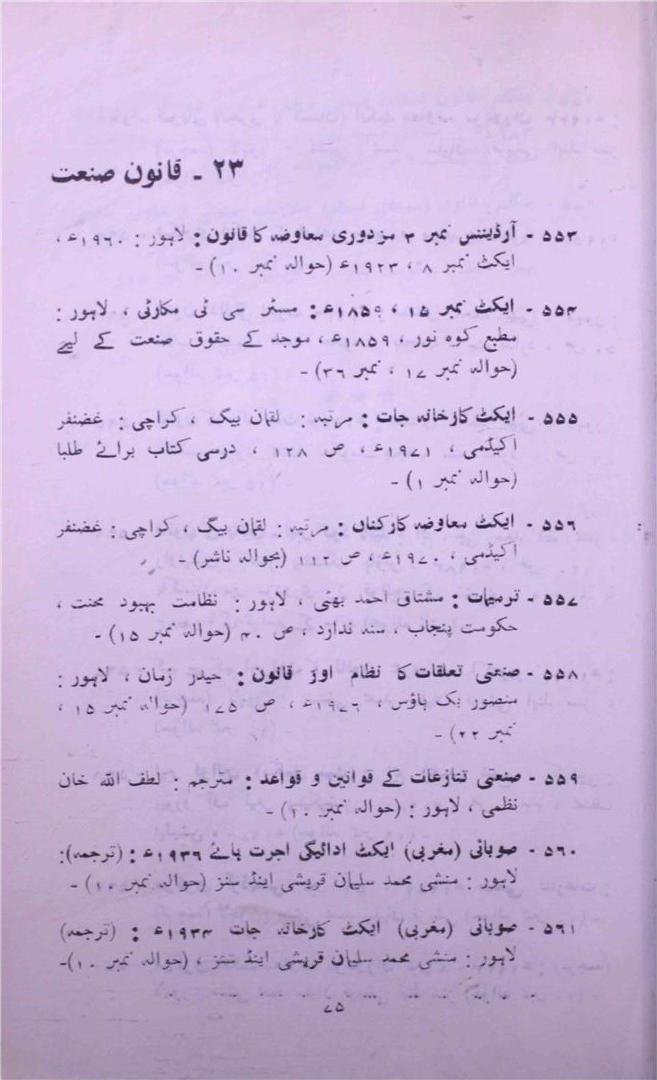 ۲۳ - قانون صنعت
۵۵۳ - آرڈیننس نمبر ۳ مزدوری معاوضہ کا قانون : لاہور : ۱۹۶۰ء ،
ایکٹ نمبر ۸ ، ۱۹۲۳ء (حوالہ نمبر ۱۰) -
۵۵۴ - ایکٹ نمبر ۱۵ ، ۱۸۵۹ء : مسٹر جی ٹی مکارٹی ، لاہور :
مطبع کوہ نور ، ۱۸۵۹ء ، موجد کے حقوق صنعت کے لیے
(حوالہ نمبر ۱۷ ، نمبر ۳۶) -
۵۵۵ - ایکٹ کارخانہ جات : مرتبہ : لقمان بیگ ، کراچی : غضنفر
اکیڈمی ، ۱۹۷۱ء ، ص ۱۲۸ ، درسی کتاب برائے طلبا
(حوالہ نمبر ۱) -
۵۵۶ - ایکٹ معاوضہ کارکناں : مرتبہ : لقمان بیگ ، کراچی : غضنفر
اکیڈمی ، ۱۹۷۰ء ، ص ۱۱۲ (بحوالہ ناشر) -
۵۵۷ - ترمیمات : مشتاق احمد بھٹی ، لاہور : نظامت بہبود محنت ،
حکومت پنجاب ، سنہ ندارد ، ص ۴۰ (حوالہ نمبر ۱۵) -
۵۵۸ - صنعتی تعلقات کا نظام اور قانون : حیدر زمان ، لاہور :
منصور بک ہاؤس ، ۱۹۷۶ء ، ص ۱۷۵ (حوالہ نمبر ۱۵ ،
نمبر ۲۲) -
۵۵۹ - صنعتی تنازعات کے قوانین و قواعد : مترجم : لطف اللہ خان
نظمی ، لاہور : (حوالہ نمبر ۱۰) -
۵۶۰ - صوبائی (مغربی) ایکٹ ادائیگی اجرت ہائے ۱۹۳۶ء : (ترجمہ) :
لاہور : منشی محمد سلیمان قریشی اینڈ سنز (حوالہ نمبر ۱۰) -
۵۶۱ - صوبائی (مغربی) ایکٹ کارخانہ جات ۱۹۳۴ء : (ترجمہ)
لاہور : منشی محمد سلیمان قریشی اینڈ سنز ، (حوالہ نمبر ۱۰) -
۷۵